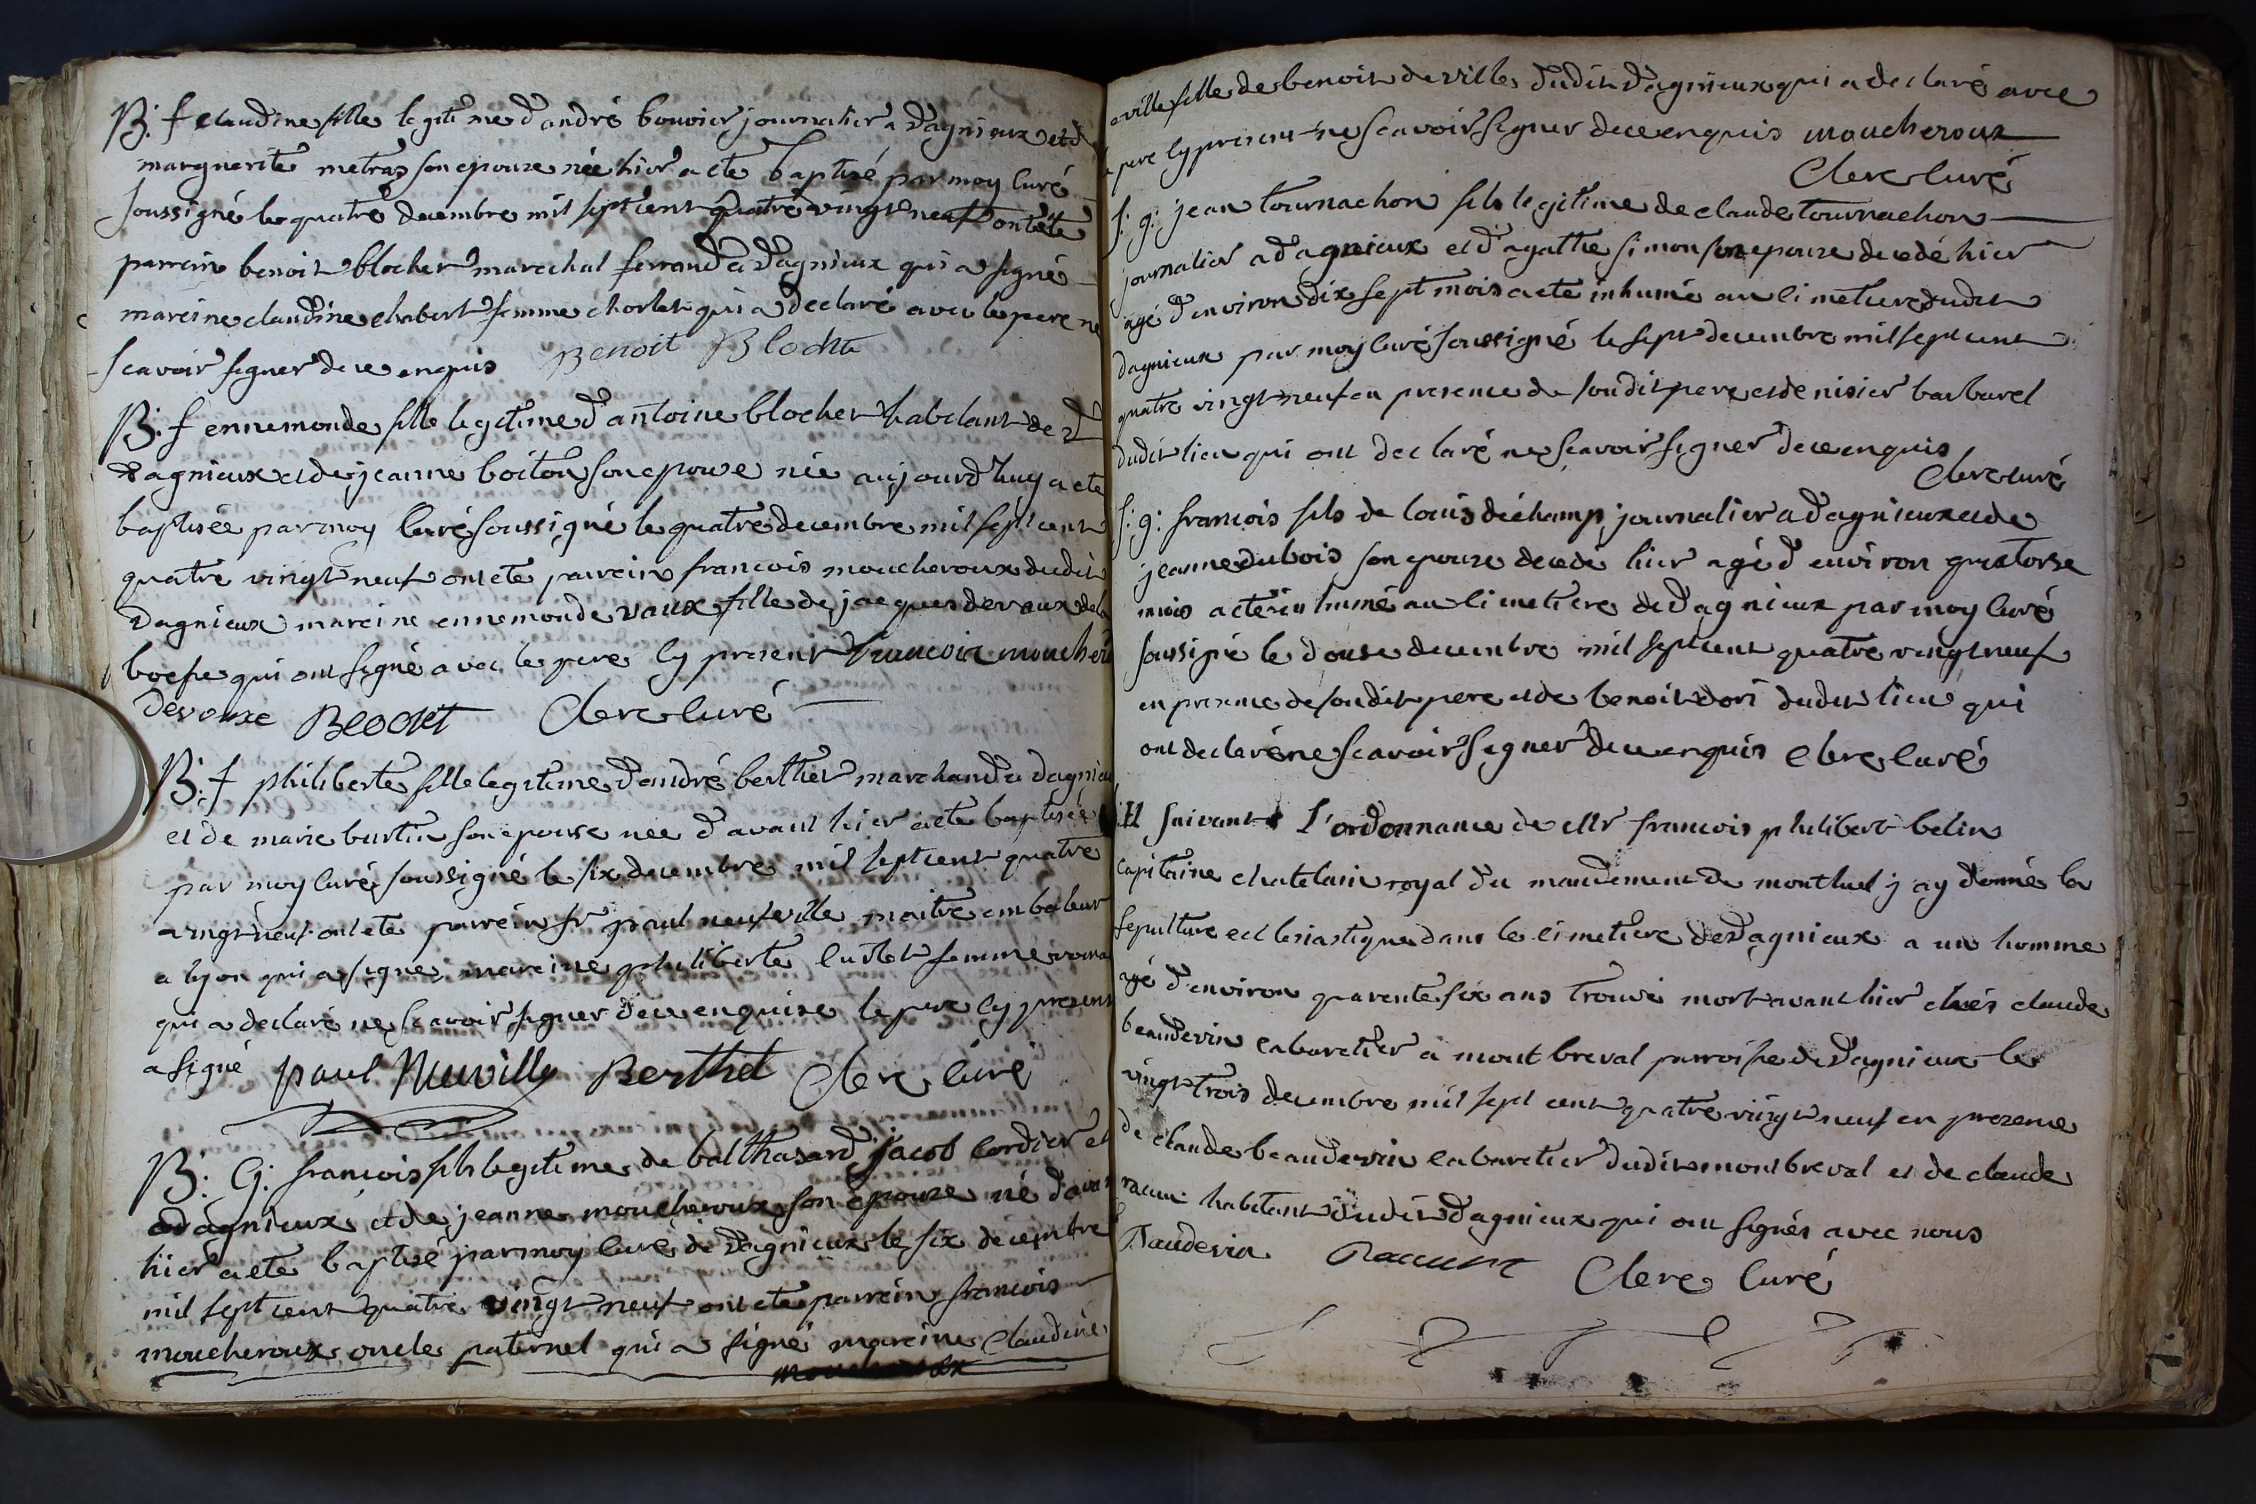 B. f claudine fille legitime d'andré bouvier journalier a dagnieux et de
marguerite metras son epouze née hier a ete baptisé par moy curé
soussigné le quatre decembre mil sept cent quatre vingt neuf ont ete
parrein benoit blochet marechal ferrand a dagnieux qui a signé
mareine claudine chabert femme chorlet qui a declaré avec le pere ne
scavoir signer de ce enquis Benoit Blochet
B. f ennemonde fille legitime d'antoine blochet habitant de
dagnieux et de jeanne boiton son epouse née aujourd'huy a ete
baptisée par moy curé soussigné le quatre decembre mil sept cent
quatre vingt neuf ont ete parrein francois moucheroux dudit
dagnieux mareine ennemonde vaux fille de jacques devaux de la
boesse qui ont signé avec le pere cy present francois mouchero
devaux Blochet Clerc curé
B. f philiberte fille legitime d'andré berthet marchand a dagnieu
et de marie burtin son epouse née d'avant hier a ete baptisée
par moy curé soussigné le six decembre mil sept cent quatre
vingt neuf ont ete parrein sr paul neufville maitre embaleur
a lyon qui a signe mareine philiberte curtet femme
qui a declaré ne scavoir signer de ce enquise le pere cy present
a signé paul Neuville Berthet Clerc curé
B. G. francois fils legitime de balthasard jacob cordier et
a dagnieux et de jeanne moucheroux son epouze né d'avan
hier a ete baptisé par moy curé de dagnieux le six decembre
mil sept cent quatre vingt neuf ont ete parrein francois
moucheroux oncle paternel qui a signé mareine claudine
moucheroux
ville fille de benoit deville dudit dagnieux qui a declaré avec
pere cy present ne scavoir signer de ce enquis moucheroux
Clerc curé
S. g. jean tournachon fils legitime de claude tournachon
journalier a dagnieux et d'agathe simon son epouze decedé hier
agé d'environ dix sept mois a ete inhumé au cimetiere dudit
dagnieux par moy curé soussigné le sept decembre mil sept cent
quatre vingt neuf en presence de son dit pere et de nisier barbarel
dudit lieu qui ont declaré ne scavoir signer de ce enquis
Clerc curé
S. g. francois fils de louis déchamp journalier a dagnieux et de
jeanne dubois son epouze decedé hier agé d'environ quatorse
mois a ete inhumé au cimetiere de dagnieux par moy curé
soussigné le douse decembre mil sept cent quatre vingt neuf
en presence de son dit pere et de benoit dori dudit lieu qui
ont declaré ne scavoir signer de ce enquis Clerc curé
H suivant l'ordonnance de Mr francois philibert belin
capitaine chatelain royal du mandement de montluel j'ay donné la
sepulture ecclesiastique dans le cimetiere de dagnieux a un homme
agé d'environ quarente six ans trouvé mort avant hier chés claude
beaudevin cabaretier a mont breval parroisse de dagnieux le
vingt trois decembre mil sept cent quatre vingt neuf en prezence
de claude beaudevin cabaretier dudit mont breval et de claude
racurt habitant dudit dagnieux qui ont signés avec nous
Baudevin Racurt Clerc Curé